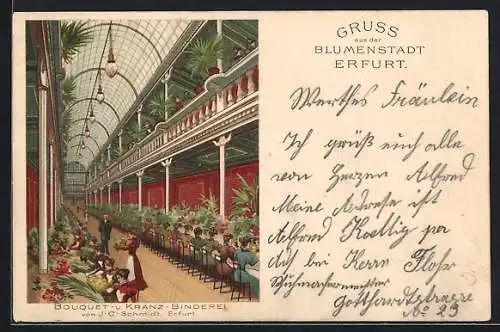 GRUSS
aus der
BLUMENSTADT
ERFURT.
Werthes Fräulein
Ich grüß euch alle
von Herzen Alfred
Meine Adresse ist
Alfred Koettig per
Ad bei Herrn Flohr
Schuhmachermeister
Gotthardtstrasse
No 23
BOUQUET- U KRANZ- BINDEREI
von J. C. Schmidt, Erfurt.